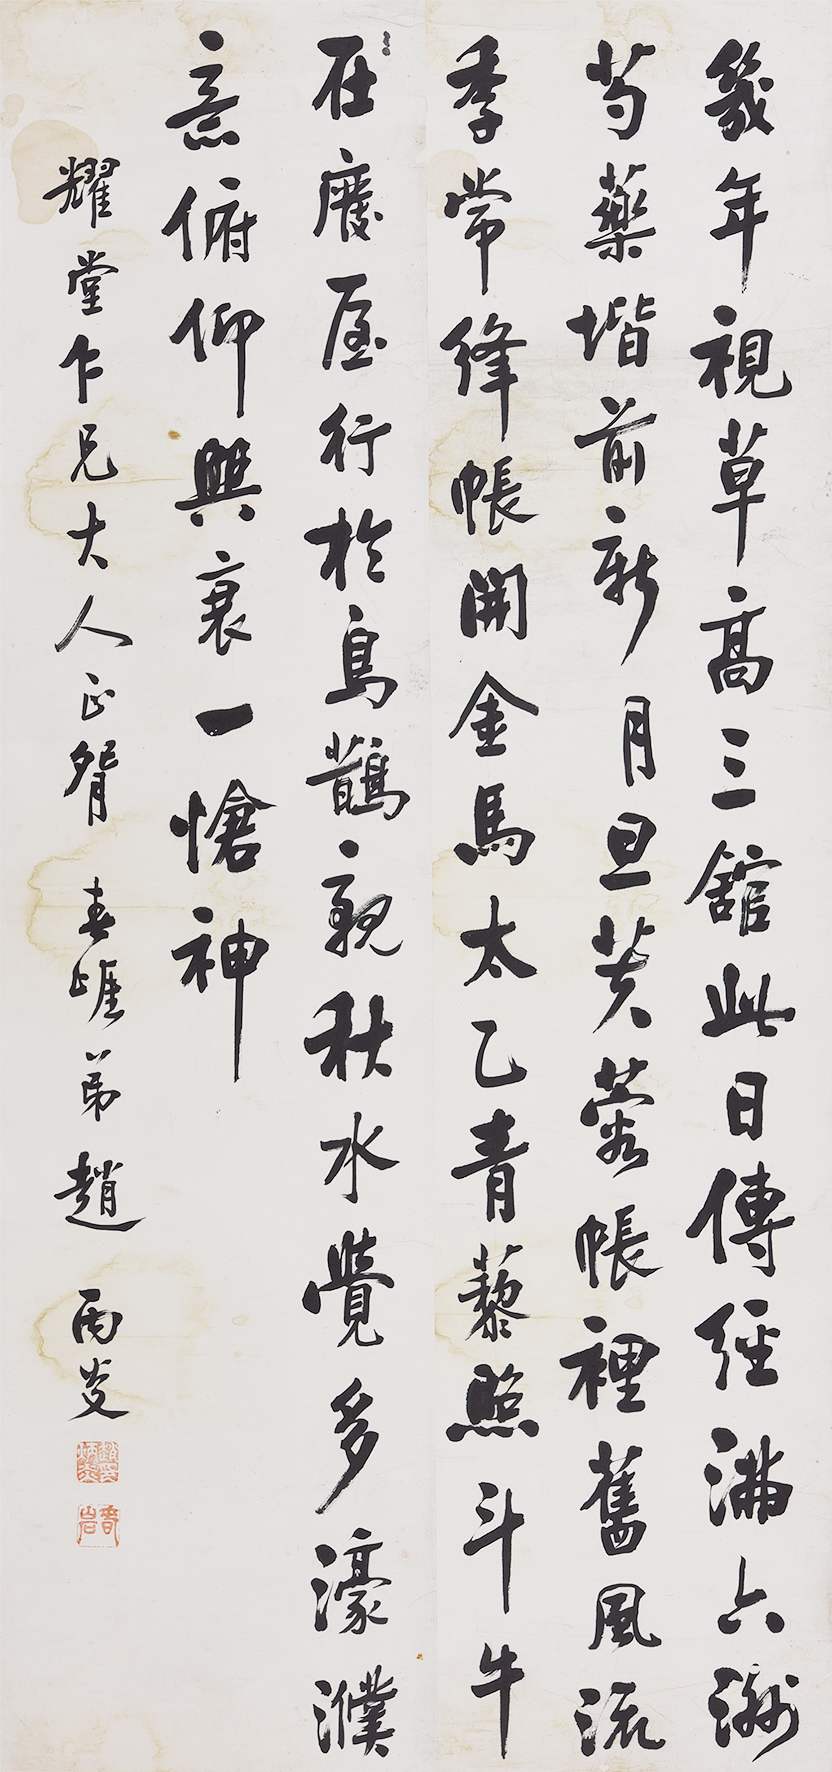 幾年視草高三舘此日傳經滿六洲
芍藥堦前新月旦芙蓉帳裡舊風流
季常絳帳開金馬太乙青藜照斗牛
在廢屋行於烏鵲親秋水覺多濠濮
意俯仰興衰一愴神
耀堂兄大人正 春崕弟趙 丙炎